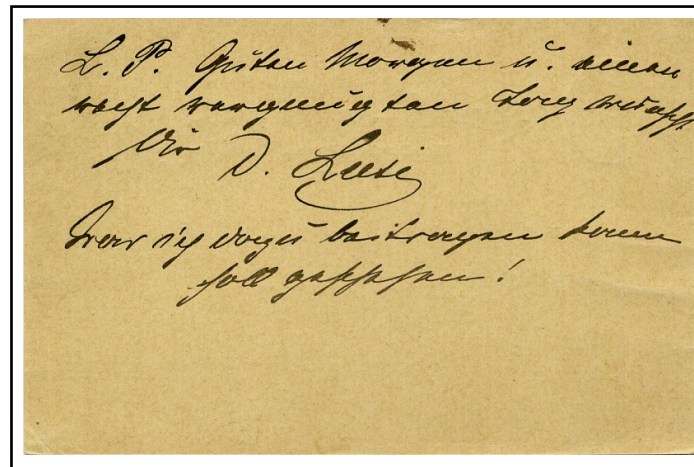 L. P. Guten Morgen u. einen
recht vergnügten Tag wünscht
Dir D. Luise
Was ich dazu beitragen kann
soll geschehen!